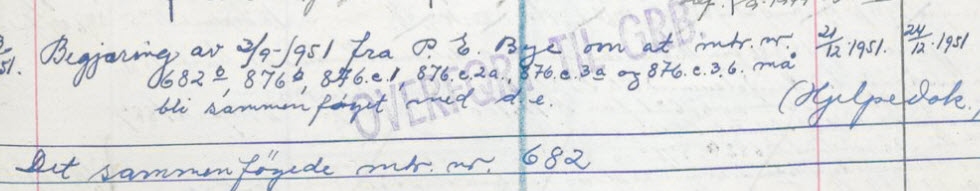 Begjæring av 2/9-1951 fra P. E. Bye om at mtr. nr. 21/12.1951. 24/12.1951
51. 682ᵃ, 876ᵇ, 876.c.1, 876.c.2a., 876.c.3a og 876.c.3.b. må
bli sammenføyet med d.e. (Hjelpedok.
OVERFØRT TIL GBB.
Det sammenføyede mtr. nr. 682